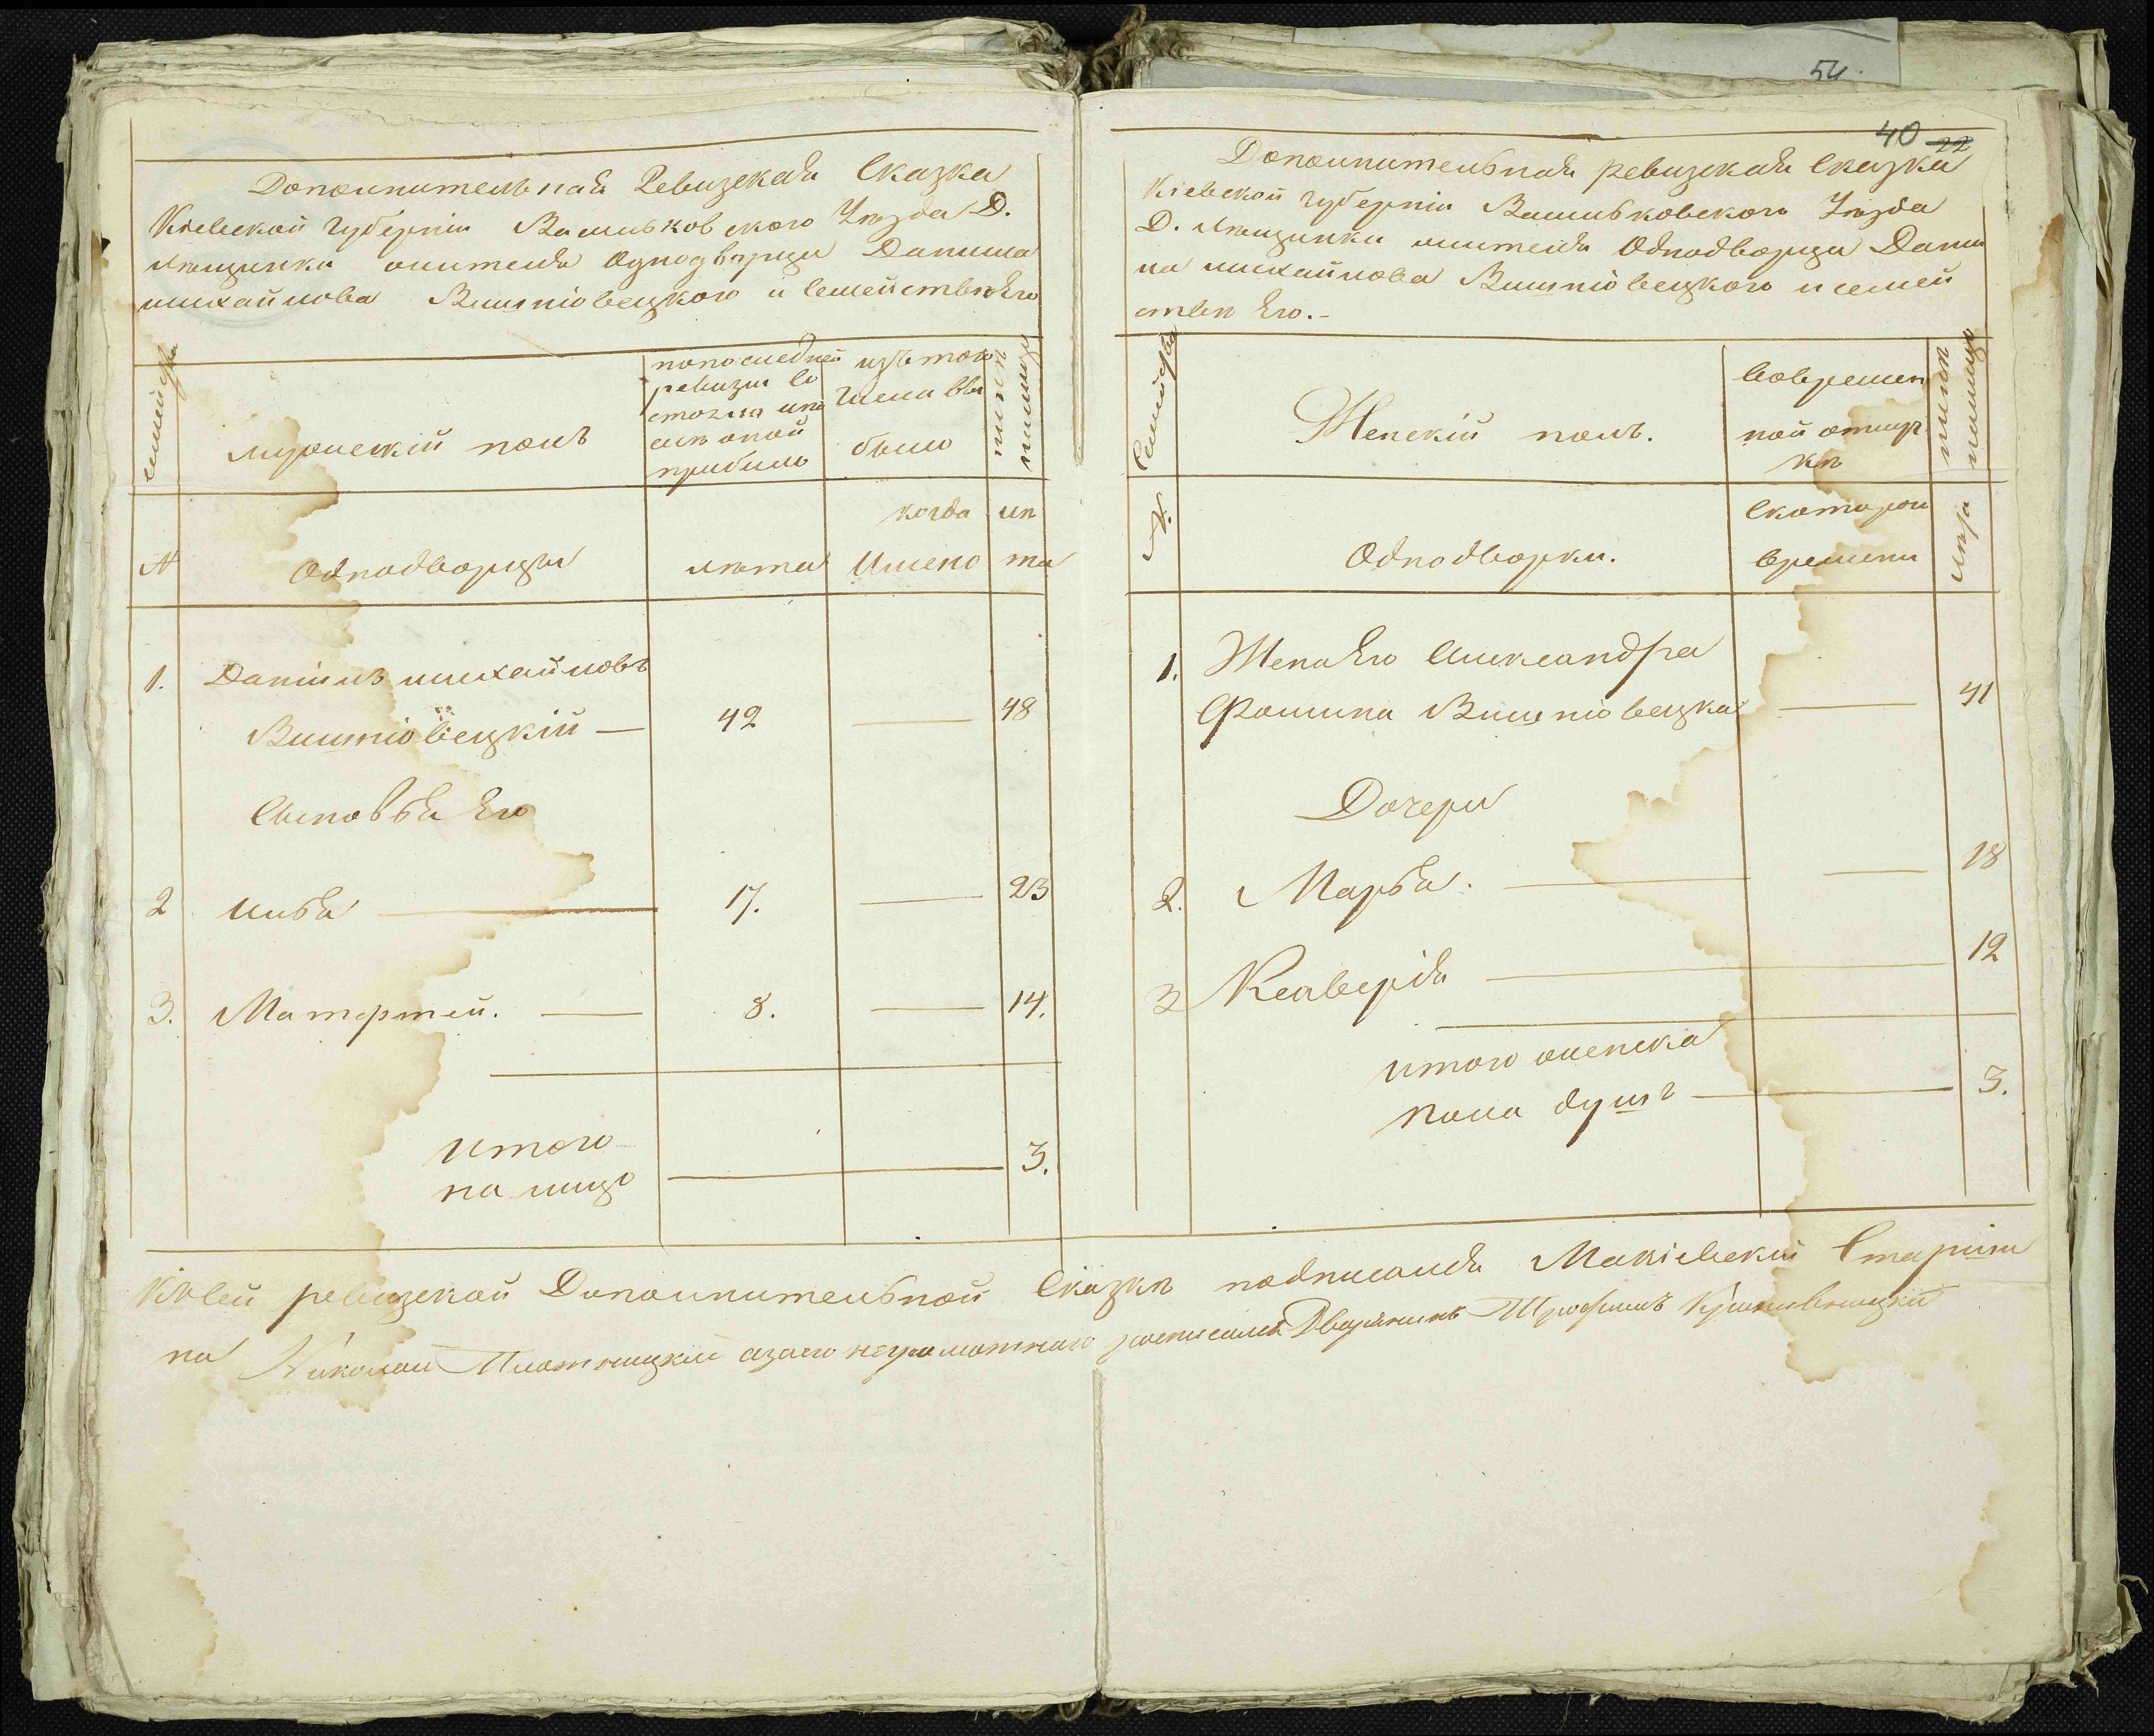 54.
40 22
Дополнительная Ревизская Сказка
Кіевской Губерніи Васильковского Уезда Д.
жителя Однодворца Данила
михайлова Вишніовецкого и Семействе Его
семейства
мужескій полъ
попоследней
ревизіи со
стояло или
после оной
прибыло
изътого
числа вы
было
ныне
налицо
№
Однодворцы
лета
когда
Имено
ле
та
1. Даніилъ михайловъ
Вишніовецкій — 42 — 48
Сыновья Его
2 Илья — 17. — 23
3. — 8. — 14.
итого
на лицо — 3.
Дополнительная ревизская Сказка
Кіевской Губерніи Васильковского Уезда
Д. жителя Однодворца Дани
ла михайлова Вишніовецкого и семей
стве Его.-
Семейства
Женскій полъ.
вовремен
ной отлуч
ке
ныне
налицо
№.
Однодворки.
Скоторого
времени
Лета
1. Жена Его Александра
Фомина Вишніовецка — 41
Дочери
2. Марья. — — 18
3 Ксаверія — 12
итого женска
пола душъ — 3.
Ксей ревизской Дополнительной Сказке подписался Макіевскій Старши
на Николай азаего неграмотнаго росписался Дворянинъ Трофимъ